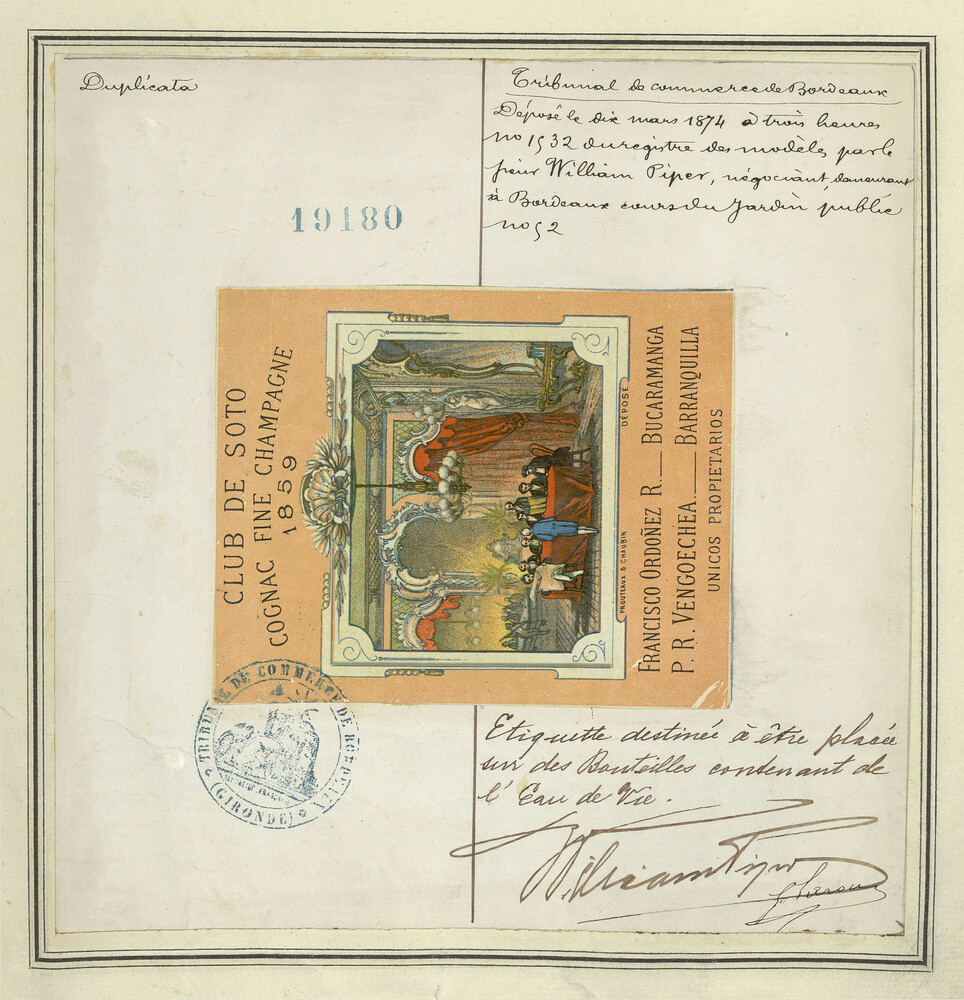 Duplicata
19180
Tribunal de commerce de Bordeaux
Déposé le dix mars 1874 à trois heures
no 1532 du registre des modèles par le
sieur William Piper, négociant, demeurant
à Bordeaux cours du Jardin public
no 52
CLUB DE SOTO
COGNAC FINE CHAMPAGNE
1859
DÉPOSÉ
PROUTEAUX & CHAUBIN
FRANCISCO ORDOÑEZ R. — BUCARAMANGA
P. R. VENGOECHEA. — BARRANQUILLA
UNICOS PROPIETARIOS
TRIBUNAL DE COMMERCE DE BORDEAUX
(GIRONDE)
Etiquette destinée à être placée
sur des Bouteilles contenant de
l'Eau de Vie.
William Piper